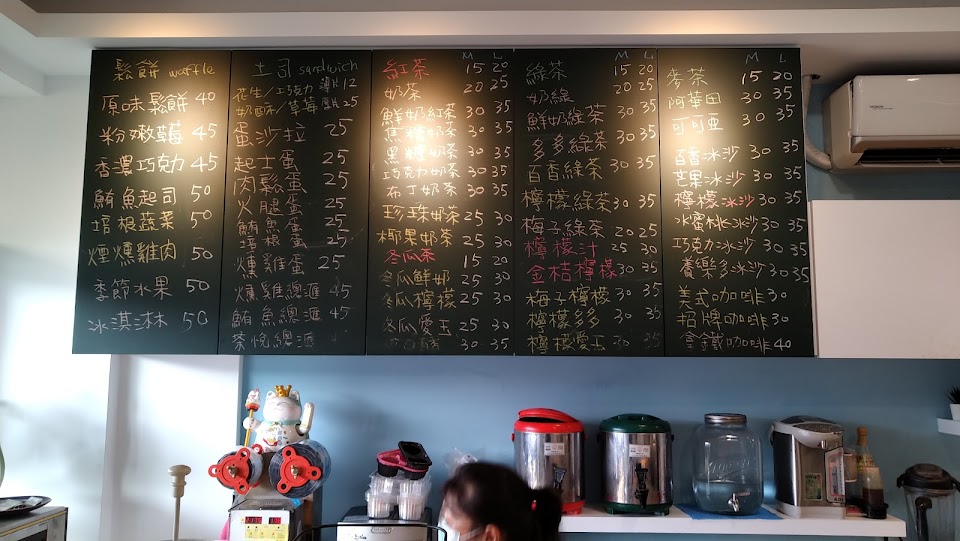 鬆餅 waffle
原味鬆餅 40
粉嫩莓 45
香濃巧克力 45
鮪魚起司 50
培根蔬菜 50
煙燻雞肉 50
季節水果 50
冰淇淋 50
土司 sandwich
花生/巧克力 薄片12
奶酥/草莓 厚片25
蛋沙拉 25
起士蛋 25
肉鬆蛋 25
火腿蛋 25
鮪魚蛋 25
培根蛋 25
燻雞蛋 25
燻雞總滙 45
鮪魚總滙 45
茶悅總滙
M L
紅茶 15 20
奶茶 20 25
鮮奶紅茶 30 35
焦糖奶茶 30 35
黑糖奶茶 30 35
巧克力奶茶 30 35
布丁奶茶 30 35
珍珠奶茶 25 30
椰果奶茶 25 30
冬瓜茶 15 20
冬瓜鮮奶 25 30
冬瓜檸檬 25 30
冬瓜愛玉 25 30
30 35
M L
綠茶 15 20
奶綠 20 25
鮮奶綠茶 30 35
多多綠茶 30 35
百香綠茶 30 35
檸檬綠茶 30 35
梅子綠茶 25 30
檸檬汁 25 30
金桔檸檬 30 35
梅子檸檬 30 35
檸檬多多 30 35
檸檬愛玉 30 35
M L
麥茶 15 20
阿華田 30 35
可可亞 30 35
百香冰沙 30 35
芒果冰沙 30 35
檸檬冰沙 30 35
水蜜桃冰沙 30 35
巧克力冰沙 30 35
養樂多冰沙 30 35
美式咖啡 30
招牌咖啡 30
拿鐵咖啡 40